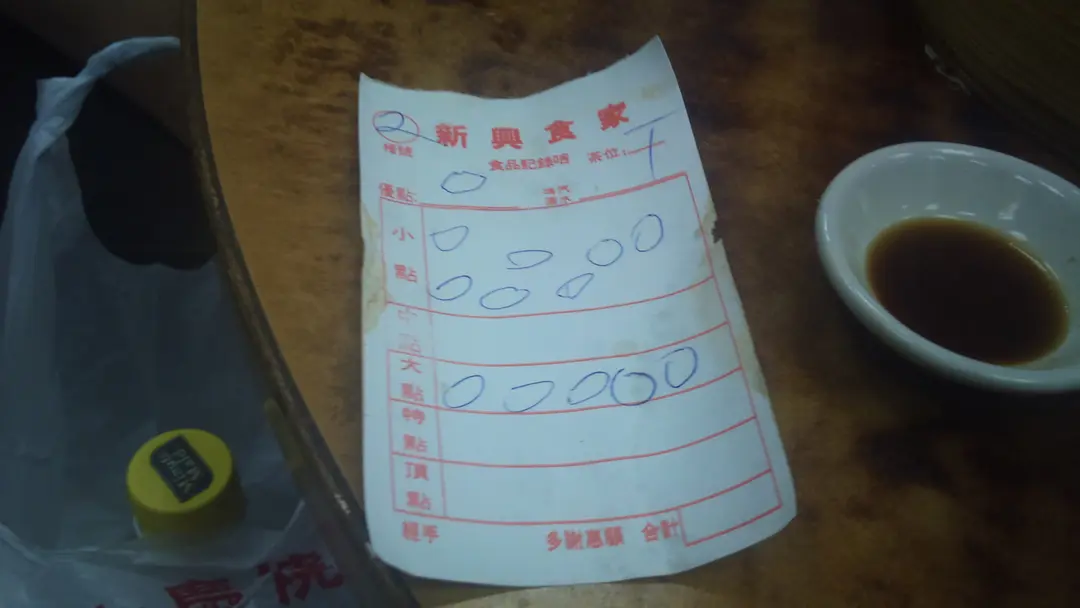 2 新興食家
檯號 食品記錄咭 茶位：T
優點
小點
中點
大點
特點
頂點
經手 多謝惠顧 合計